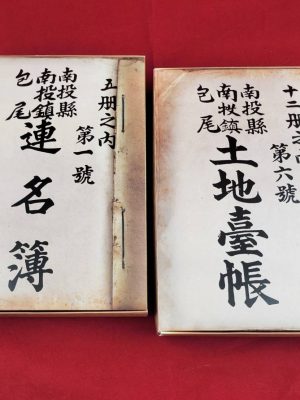 五册之內
第一號
南投縣
南投鎮
包尾
連名簿
十二册之內
第六號
南投縣
南投鎮
包尾
土地臺帳